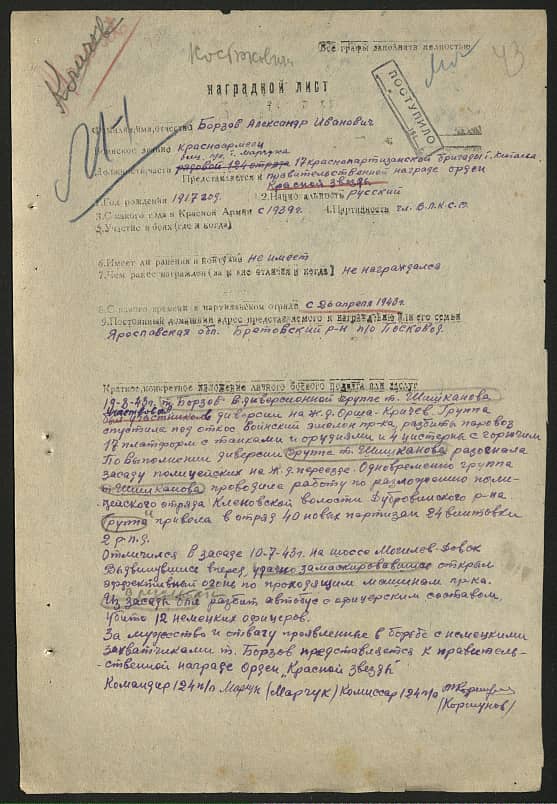 Костюкович
Все графы заполнять полностью
43
НАГРАДНОЙ ЛИСТ
ПОСТУПИЛО
Фамилия, имя, отчество Борзов Александр Иванович
Воинское звание Красноармеец
им. пр. г. Марчука
Должность, часть рядовой 124 отряда 17 краснопартизанской бригады г. Кит
Представляется к правительственной награде орден
Красной Звезды
1. Год рождения 1917 год. 2. Национальность русский
3. С какого года в Красной Армии с 1939 г. 4. Партийность чл. В.Л.К.С.М.
5. Участие в боях (где и когда)
6. Имеет ли ранения и контузии не имеет
7. Чем ранее награжден (за какие отличия и когда) не награждался
8. С какого времени в партизанском отряде с 26 апреля 1943 г.
9. Постоянный домашний адрес представляемого к награждению или его семьи
Ярославская обл. Бретовский р-н п/о Посковод.
Краткое, конкретное изложение личного боевого подвига или заслуг
19-8-43 г. т. Борзов в диверсионной группе т. Шишканова
участвовал
был участником диверсии на ж.д. Орша-Кричев. Группа
спустила под откос воинский эшелон пр-ка, разбиты паровоз
17 платформ с танками и орудиями и 4 цистерны с горючим
По выполнении диверсии группа т. Шишканова разогнала
засаду полицейских на ж.д. переезде. Одновременно группа
т. Шишканова проводила работу по разложению поли-
цейского отряда Кленовской волости Дубровинского р-на
Группа привела в отряд 40 новых партизан 24 винтовки
2 р.п.д.
Отличился в засаде 10-7-43 г. на шоссе Могилев-Довск
Выдвинувшись вперед, удачно замаскировавшись открыл
эффективный огонь по проходящим машинам пр-ка.
Из засады был разбит автобус с офицерским составом,
убито 12 немецких офицеров.
За мужество и отвагу проявленные в борьбе с немецкими
захватчиками т. Борзов представляется к правитель-
-ственной награде Орден „Красной Звезды"
Командир 124 п/о Марчук (Марчук) Комиссар 124 п/о
(Коршунов)